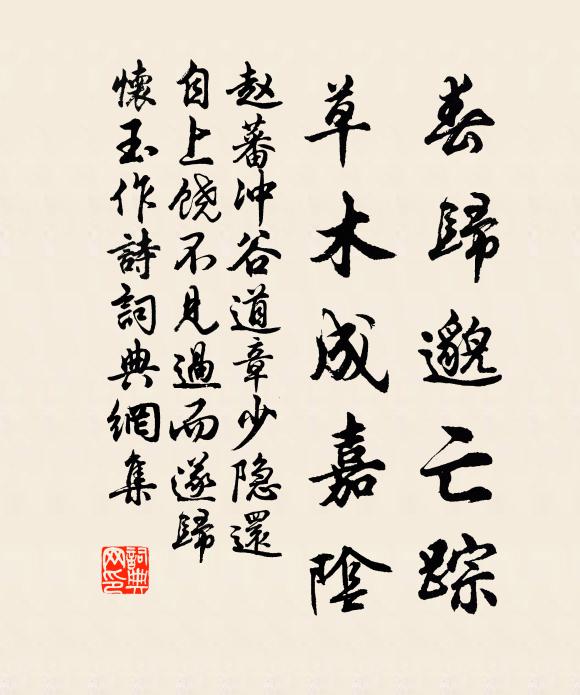 春歸邈亡踪
草木成嘉陰
赵蕃沖谷道章少隐還
自上饶不見過而遂歸
懷玉作詩詞典網集
詞典網印